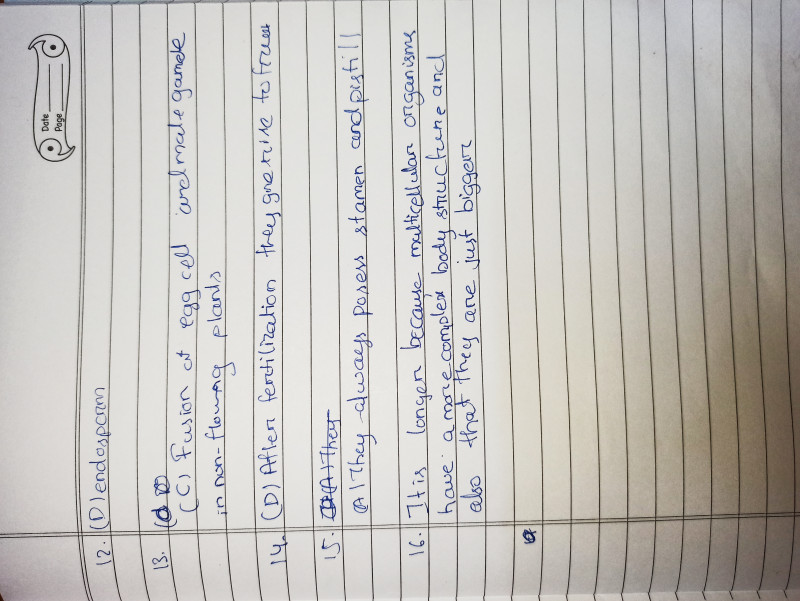 Date
Page
12. (D) endosperm
13.
(C) Fusion of egg cell and male gamete
in non-flowing plants
14. (D) After fertilization they give rise to fruit
15. (A) They
(A) They always posess stamen and pistill
16. It is longer because multicellular organisms
have a more complex body structure and
also that they are just bigger